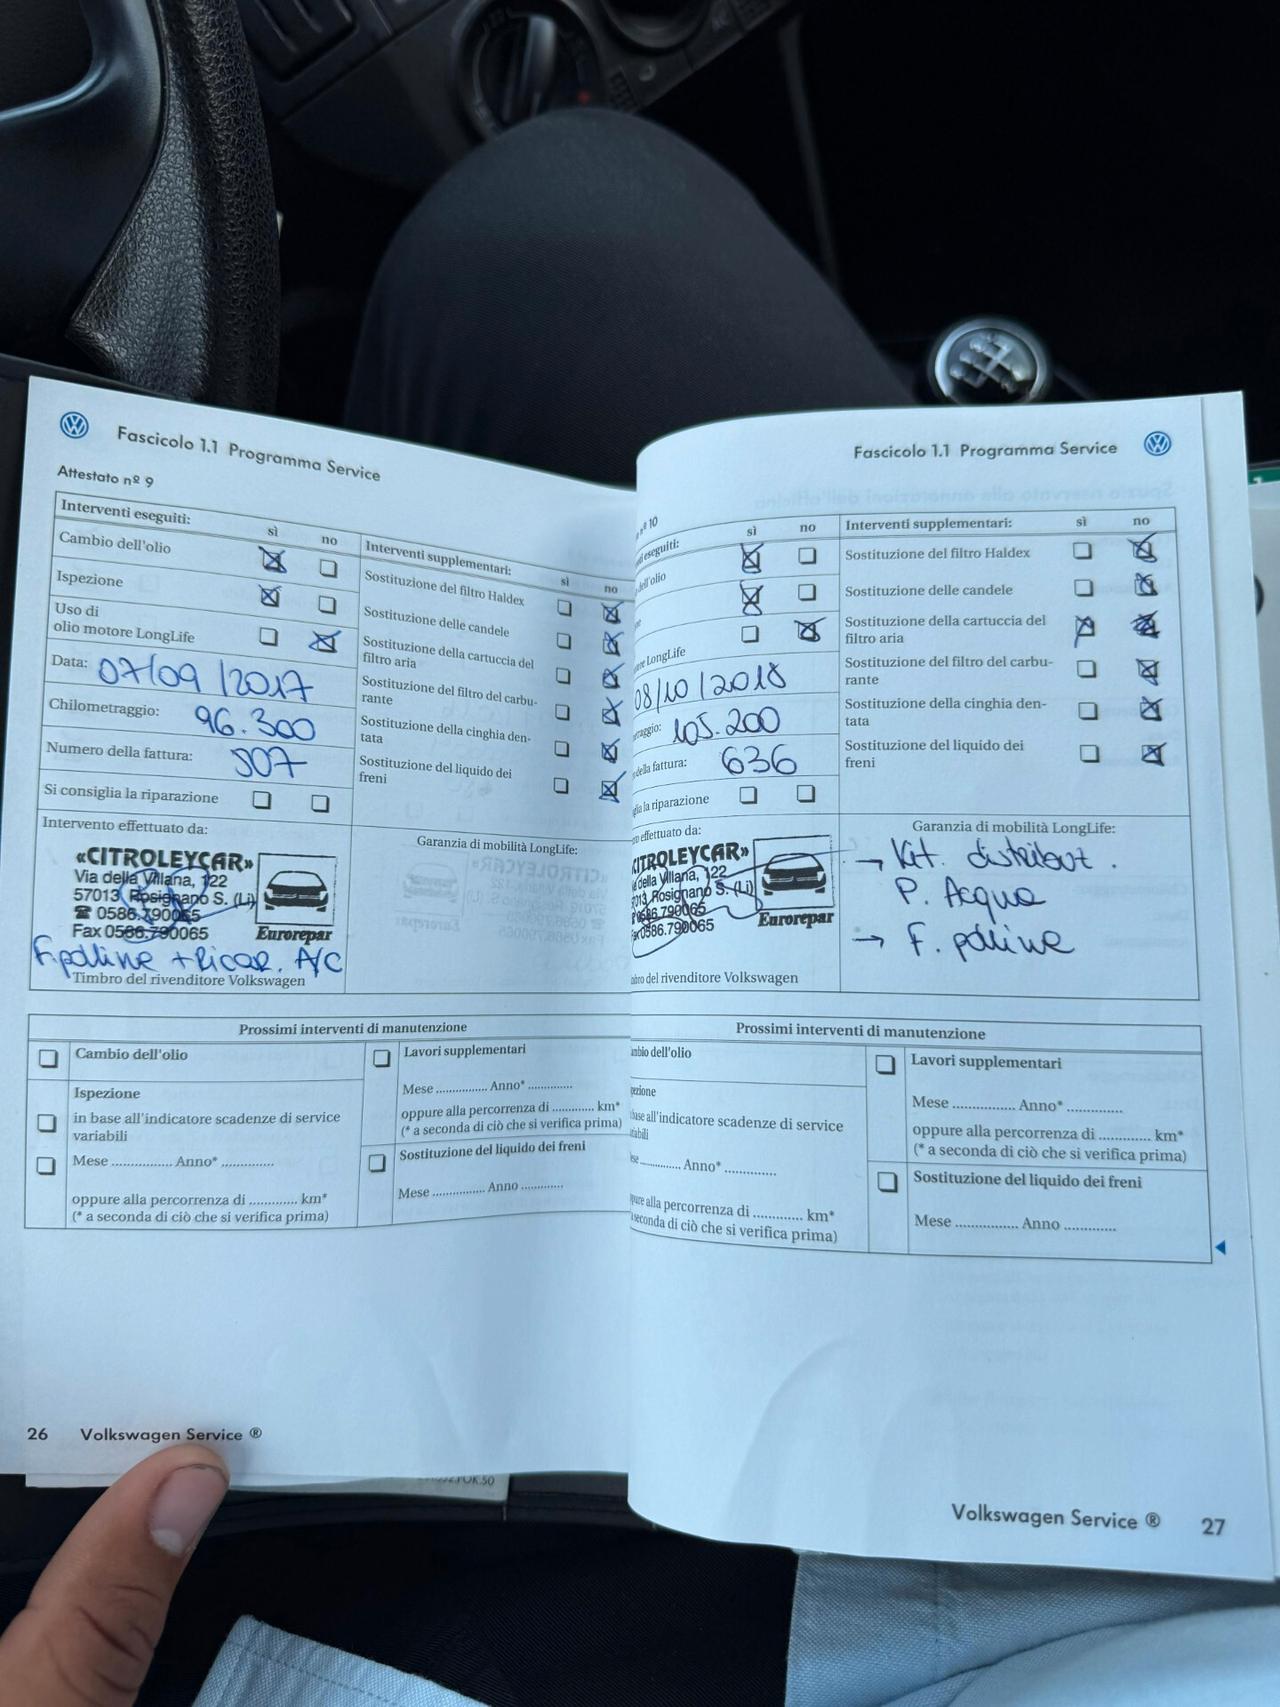 Fascicolo 1.1 Programma Service
Attestato nº 9
Interventi eseguiti:
sì no
Cambio dell'olio
Ispezione
Uso di
olio motore LongLife
Data: 07/09/2017
Chilometraggio: 96.300
Numero della fattura: 507
Si consiglia la riparazione
Interventi supplementari:
sì no
Sostituzione del filtro Haldex
Sostituzione delle candele
Sostituzione della cartuccia del
filtro aria
Sostituzione del filtro del carbu-
rante
Sostituzione della cinghia den-
tata
Sostituzione del liquido dei
freni
Intervento effettuato da:
«CITROLEYCAR»
Via della Villana, 122
57013 Rosignano S. (Li)
☎ 0586.790065
Fax 0586.790065
Eurorepar
F. polline + Ricar. A/C
Timbro del rivenditore Volkswagen
Garanzia di mobilità LongLife:
Prossimi interventi di manutenzione
Cambio dell'olio
Ispezione
in base all'indicatore scadenze di service
variabili
Mese ............... Anno* .............
oppure alla percorrenza di ............ km*
(* a seconda di ciò che si verifica prima)
Lavori supplementari
Mese ............... Anno* .............
oppure alla percorrenza di ........... km*
(* a seconda di ciò che si verifica prima)
Sostituzione del liquido dei freni
Mese ............... Anno ............
26 Volkswagen Service ®
Fascicolo 1.1 Programma Service
nº 10
eseguiti:
sì no
dell'olio
LongLife
08/10/2018
105.200
della fattura: 636
la riparazione
Interventi supplementari:
sì no
Sostituzione del filtro Haldex
Sostituzione delle candele
Sostituzione della cartuccia del
filtro aria
Sostituzione del filtro del carbu-
rante
Sostituzione della cinghia den-
tata
Sostituzione del liquido dei
freni
effettuato da:
CITROLEYCAR»
della Villana, 122
Rosignano S. (Li)
0586.790065
0586.790065
Eurorepar
del rivenditore Volkswagen
Garanzia di mobilità LongLife:
→ Kit. distribut.
P. Acqua
→ F. polline
Prossimi interventi di manutenzione
dell'olio
all'indicatore scadenze di service
............ Anno* .............
alla percorrenza di ............ km*
seconda di ciò che si verifica prima)
Lavori supplementari
Mese ............... Anno* .............
oppure alla percorrenza di ............ km*
(* a seconda di ciò che si verifica prima)
Sostituzione del liquido dei freni
Mese ............... Anno ............
Volkswagen Service ® 27